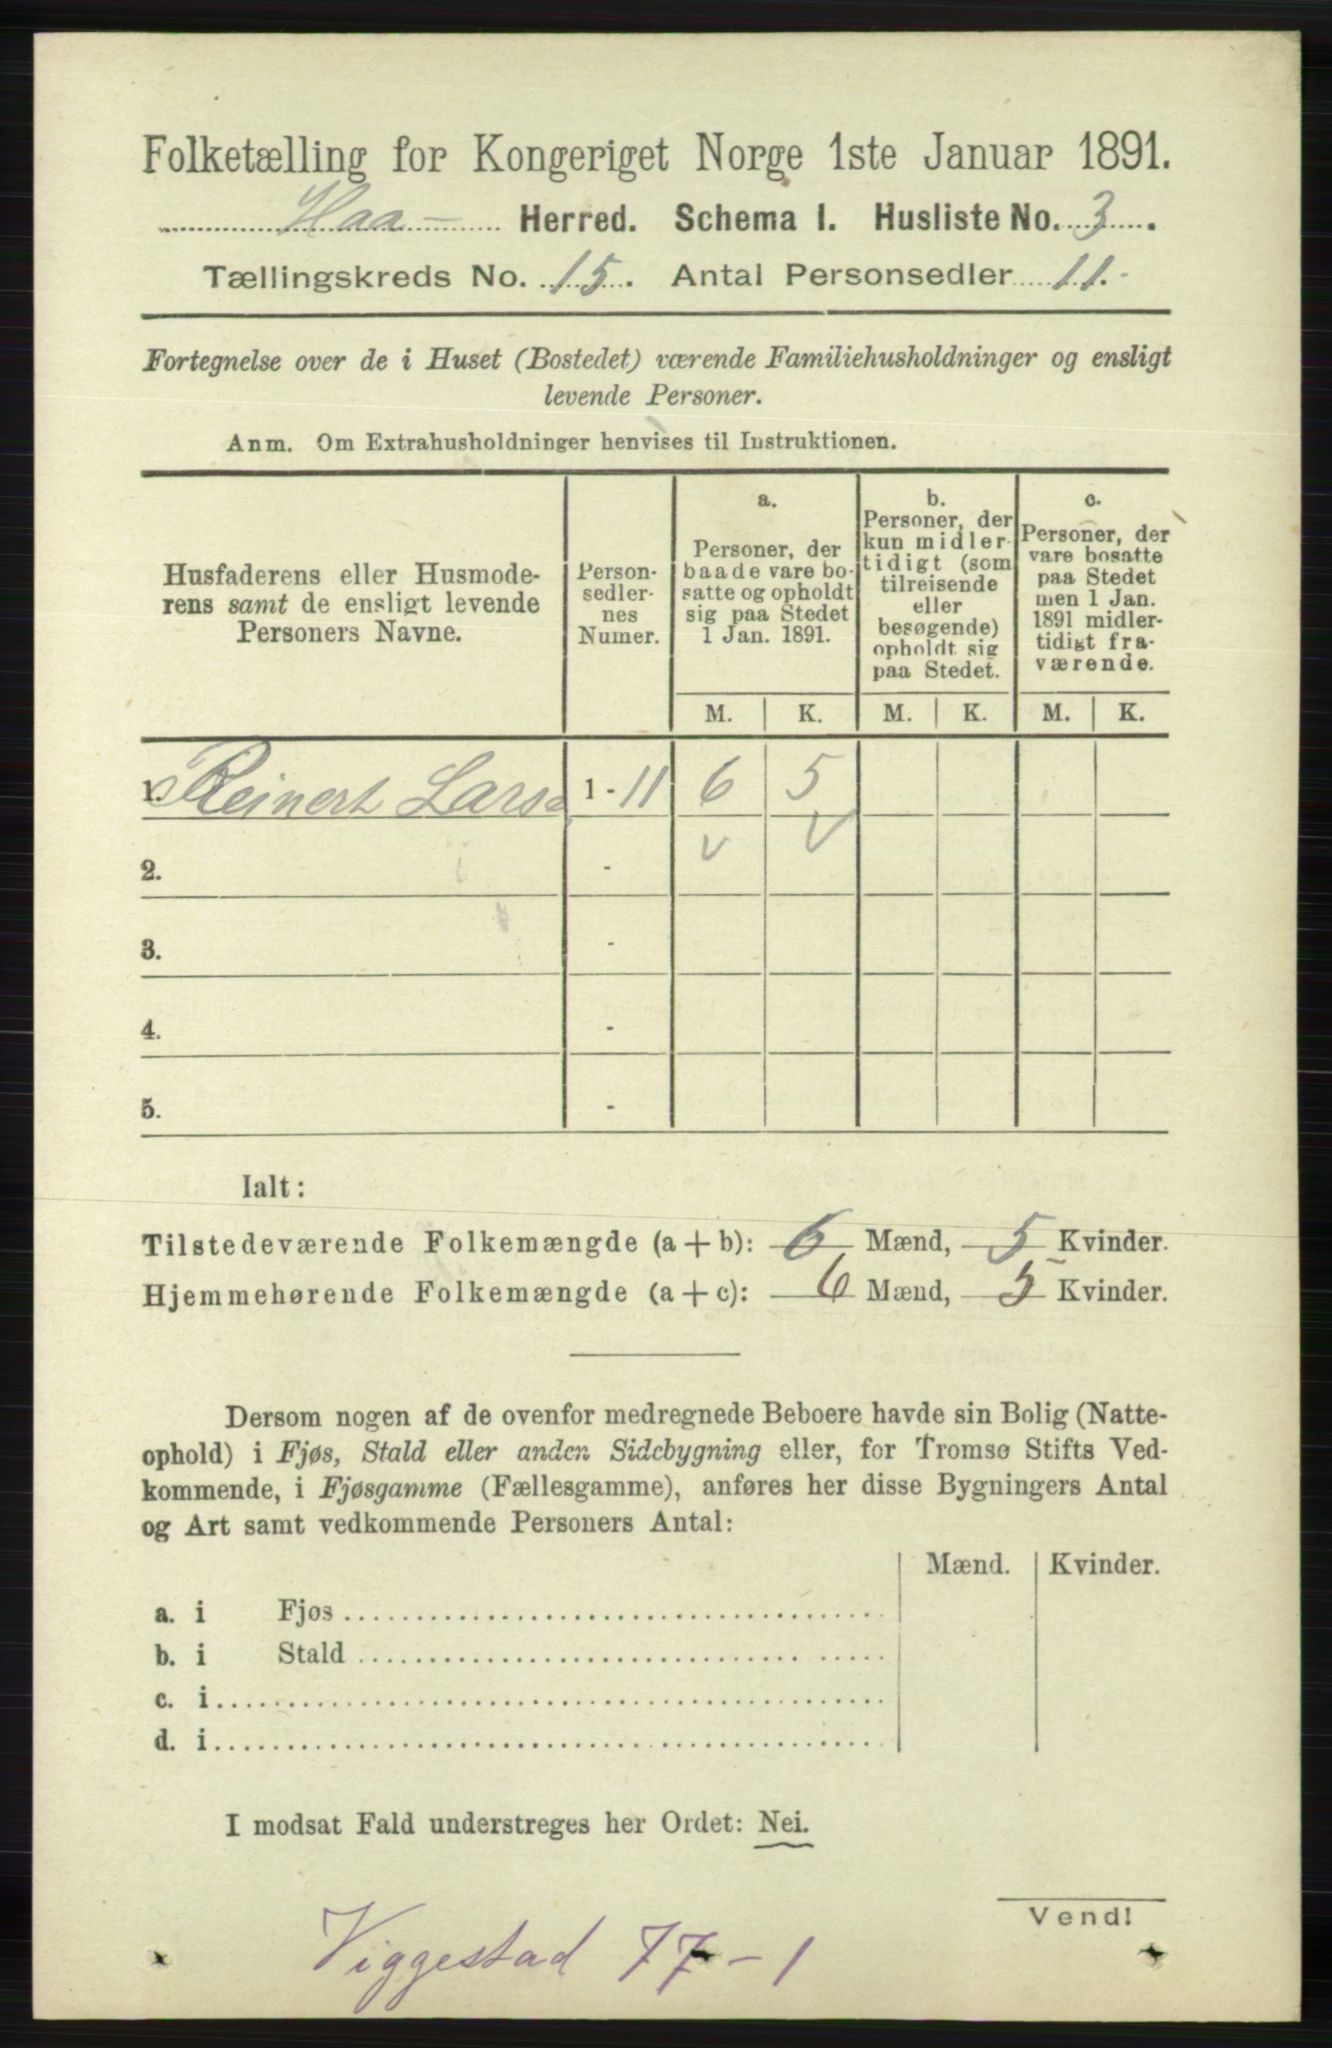 Folketælling for Kongeriget Norge 1ste Januar 1891.
Haa Herred. Schema I. Husliste No. 3.
Tællingskreds No. 15. Antal Personsedler 11.
Fortegnelse over de i Huset (Bostedet) værende Familiehusholdninger og ensligt
levende Personer.
Anm. Om Extrahusholdninger henvises til Instruktionen.
Husfaderens eller Husmode-
rens samt de ensligt levende
Personers Navne.
Person-
sedler-
nes
Numer.
a.
Personer, der
baade vare bo-
satte og opholdt
sig paa Stedet
1 Jan. 1891.
b.
Personer, der
kun midler-
tidigt (som
tilreisende
eller
besøgende)
opholdt sig
paa Stedet.
c.
Personer, der
vare bosatte
paa Stedet
men 1 Jan.
1891 midler-
tidigt fra-
værende.
M. K. M. K. M. K.
1. Reinert Lars 1 - 11 6 5
2. -
3. -
4. -
5. -
Ialt:
Tilstedeværende Folkemængde (a + b): 6 Mænd, 5 Kvinder.
Hjemmehørende Folkemængde (a + c): 6 Mænd, 5 Kvinder.
Dersom nogen af de ovenfor medregnede Beboere havde sin Bolig (Natte-
ophold) i Fjøs, Stald eller anden Sidebygning eller, for Tromsø Stifts Ved-
kommende, i Fjøsgamme (Fællesgamme), anføres her disse Bygningers Antal
og Art samt vedkommende Personers Antal:
Mænd. Kvinder.
a. i Fjøs
b. i Stald
c. i
d. i
I modsat Fald understreges her Ordet: Nei.
Vend!
Viggestad 77-1